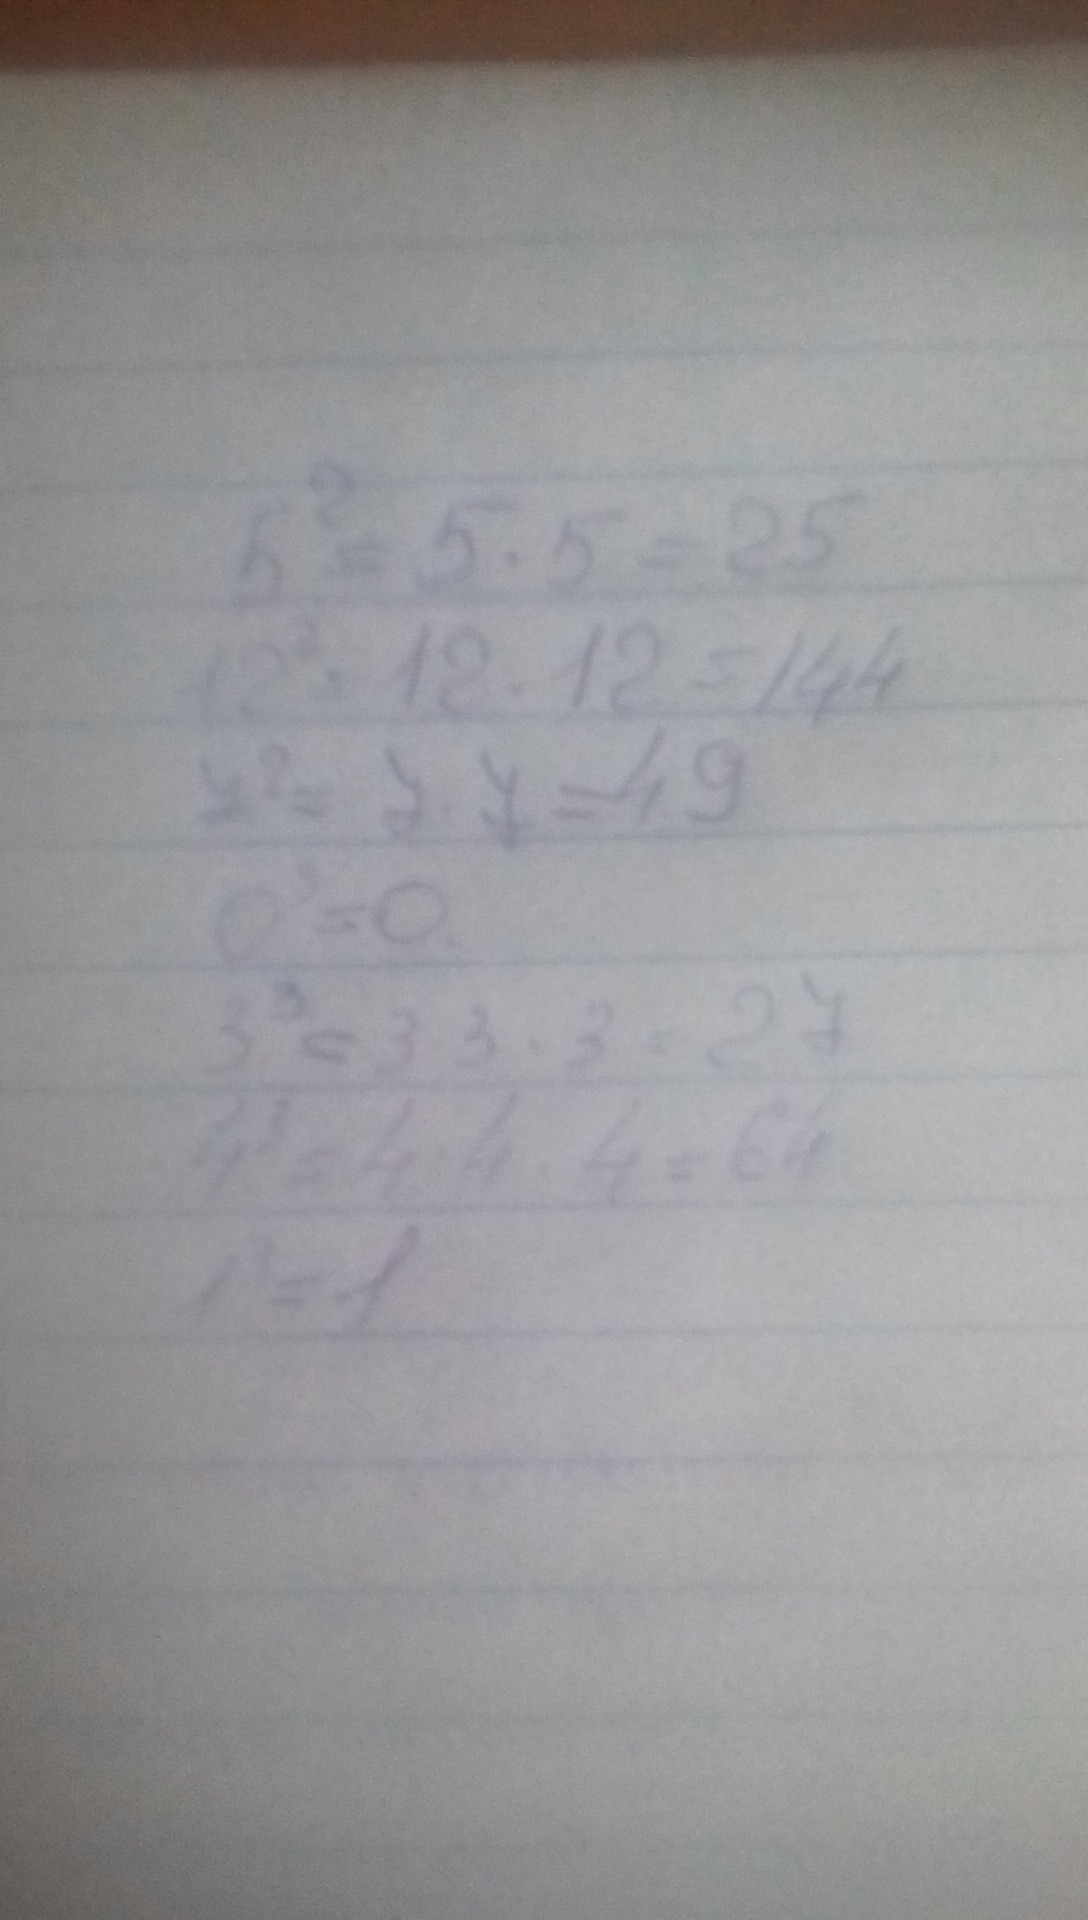 5² = 5 · 5 = 25
12² = 12 · 12 = 144
7² = 7 · 7 = 49
0³ = 0
3³ = 3 · 3 · 3 = 27
4³ = 4 · 4 · 4 = 64
1³ = 1